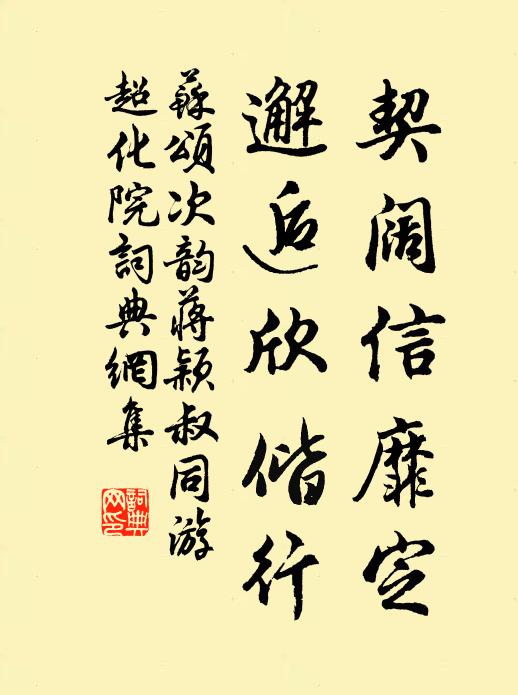 契阔信靡定
邂逅欣偕行
蘇頌次韵蔣颖叔同游
超化院詞典網集
詞典网印